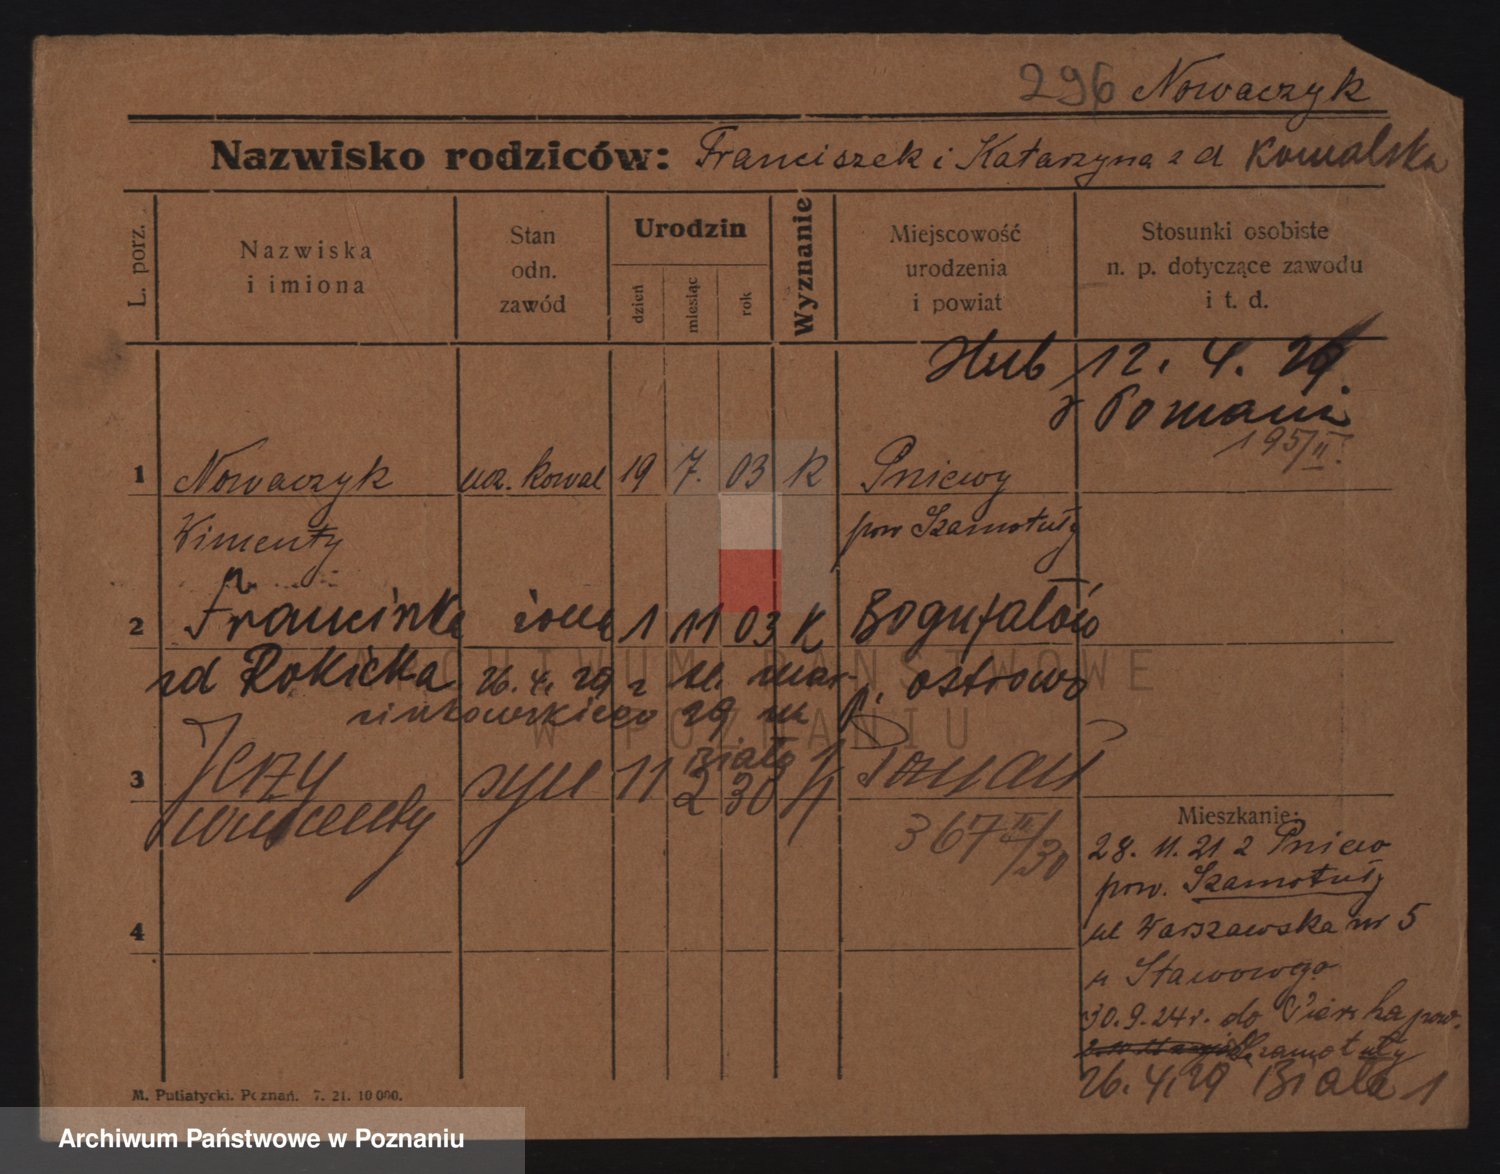 296 Nowaczyk
Nazwisko rodziców: Franciszek i Katarzyna z d Kowalska
L. porz.
Nazwiska
i imiona
Stan
odn.
zawód
Urodzin
dzień
miesiąc
rok
Wyznanie
Miejscowość
urodzenia
i powiat
Stosunki osobiste
n. p. dotyczące zawodu
i t. d.
12. 4. 29.
195/II.
1 Nowaczyk ucz. kowal 19 7. 03 k Pniewy
pow Szamotuły
2 Franciszka żona 1 11 03 K Bogufałów
zd Rokicka 26. 4. 29 z ul. Mar- p. Ostrowo
cinkowskiego 29. na
Biała 1
3 Jerzy syn 11 2 30 Poznań
Wincenty
367 II/30
4
Mieszkanie:
28. 11. 21 z Pniew
pow. Szamotuły
ul Warszawska nr 5
u Stawowego
30.9.24 r. do pow.
Szamotuły
26. 4. 29 Biała 1
M. Putiatycki. Poznań. 7. 21. 10 000.
ARCHIWUM PAŃSTWOWE
W POZNANIU
Archiwum Państwowe w Poznaniu